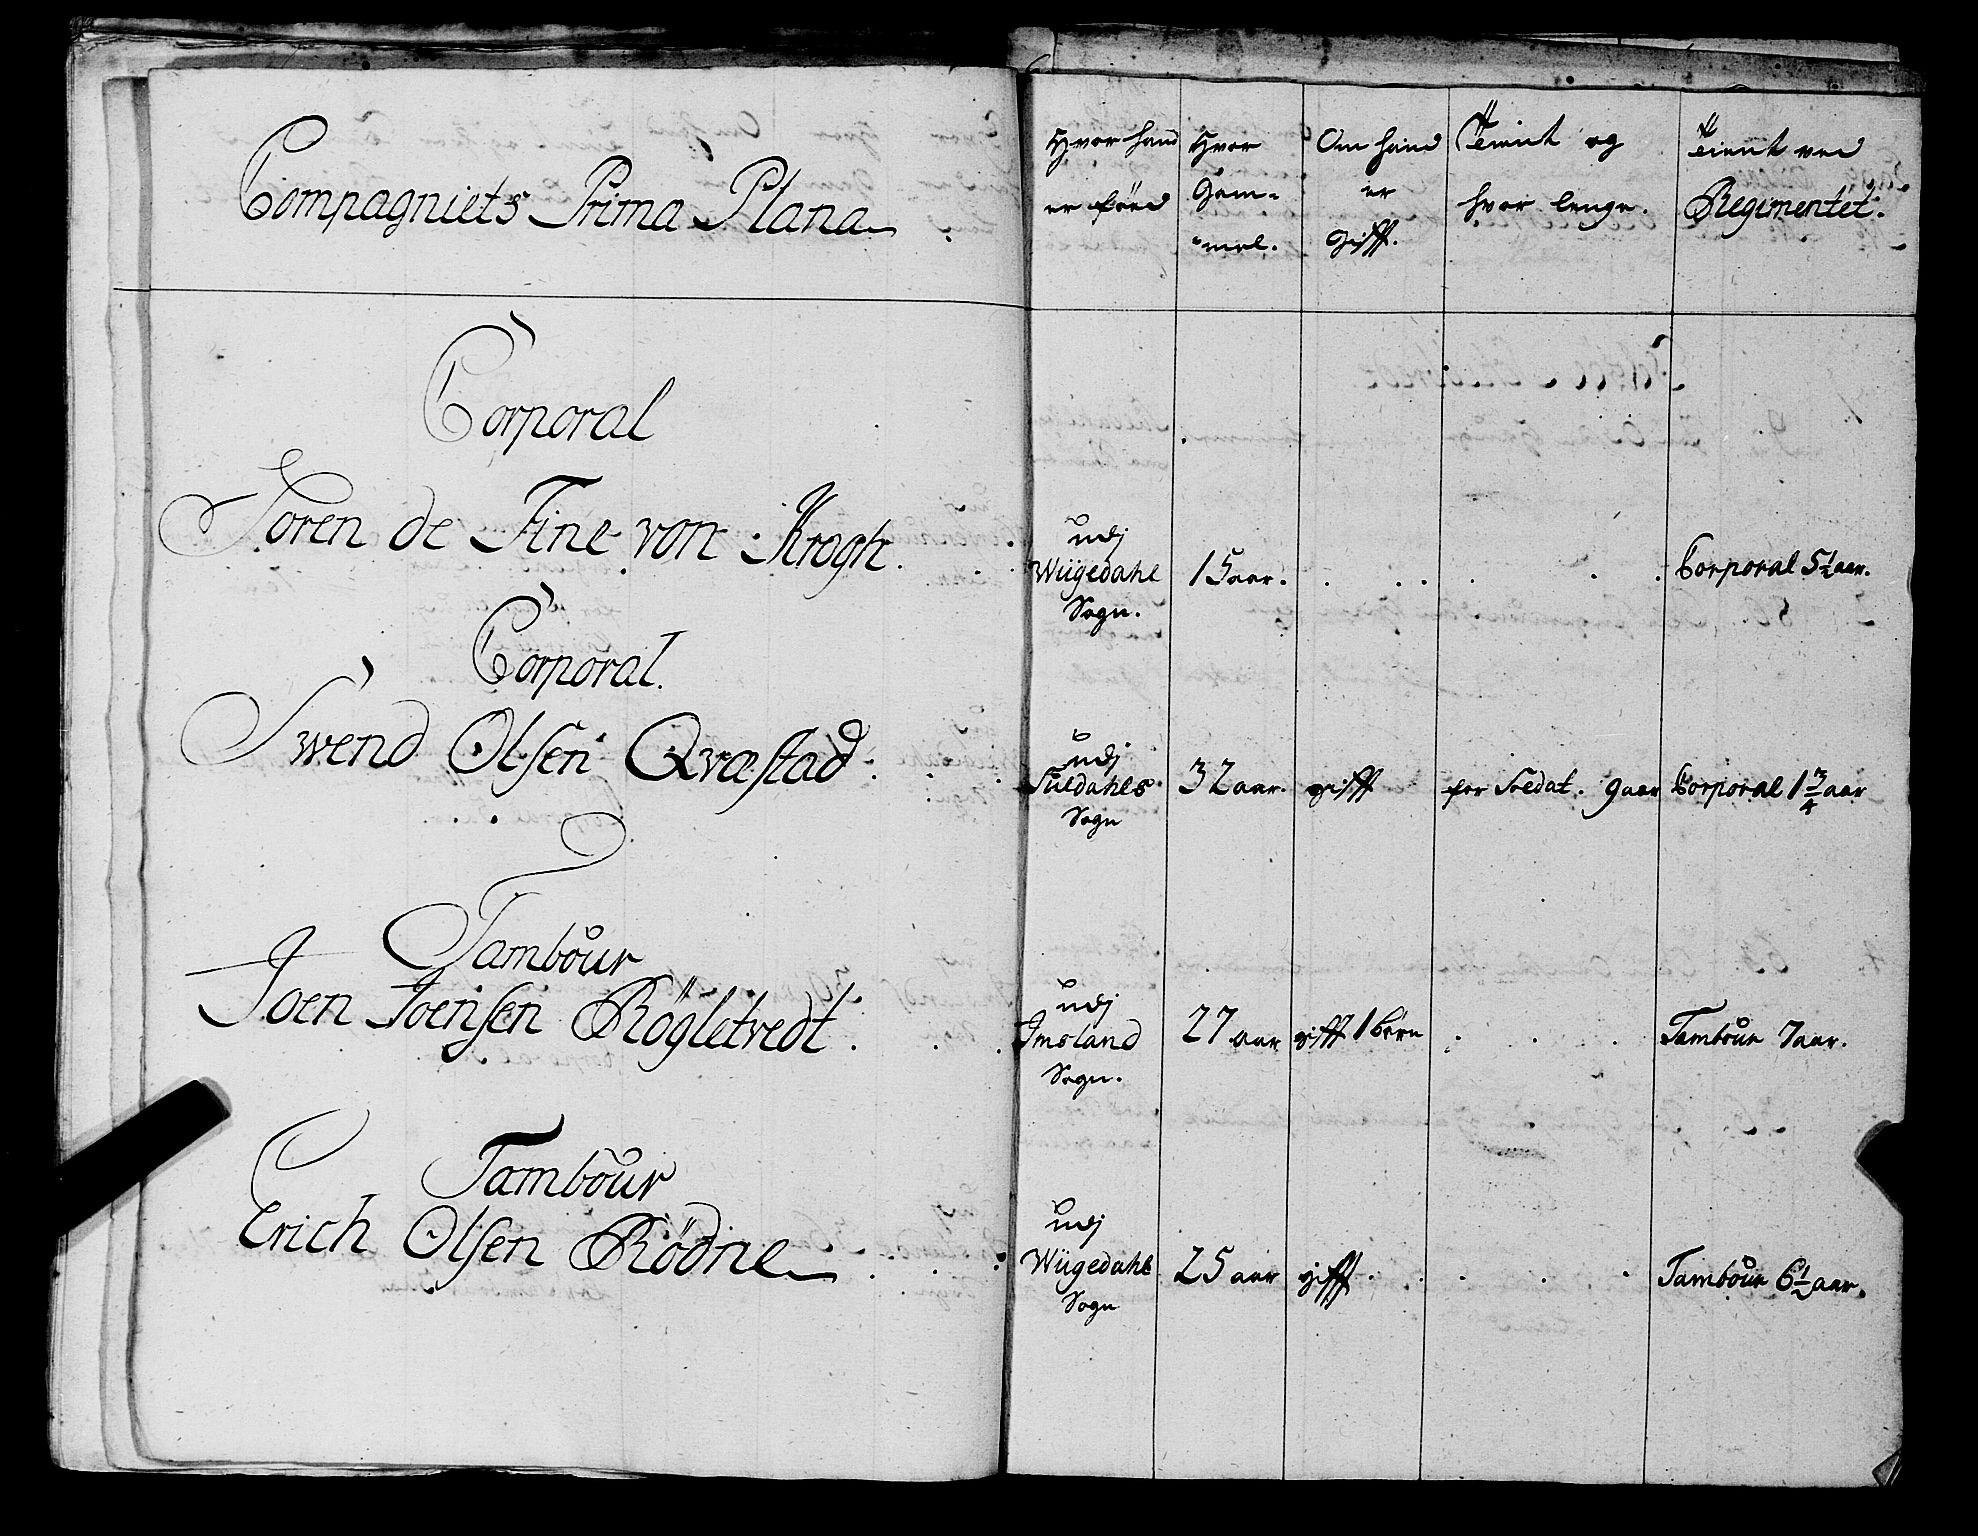 Compagniets Prima Plana
Hvor hand
er föed
Hvor
Gam-
-mel.
Om hand
er
gifft.
Tient og
hvor lenge.
Tient ved
Regimentet.
Corporal
Soren de Fine von Krogh.
udj
Wiigedahl
Sogn.
15 aar.
Corporal 5½ aar.
Corporal.
Swend Olsen Qvæstad
udj
Suldahls
Sogn
32 aar.
gifft
for Soldat. 9 aar
Corporal 1¾ aar
Tambour
Joen Joensen Rögletvedt.
udj
Imsland
Sogn.
27 aar
gifft 1 barn
Tambour 7 aar.
Tambour
Erich Olsen Rödne
udj
Wiigedahl
Sogn
25 aar
gifft.
Tambour 6½ aar.